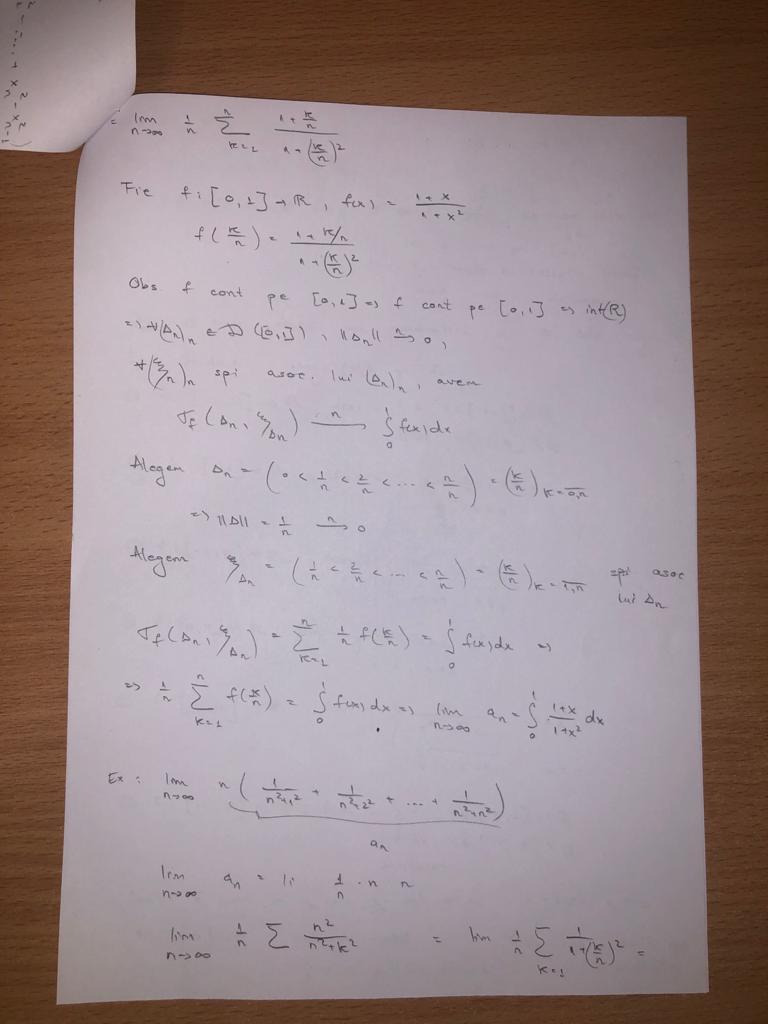 ² - ... + xₙ² - x²ₙ₋₁)
= lim n→∞ 1/n Σ k=1 n (1 + k/n)/(1 + (k/n)²)
Fie f : [0,1] → ℝ, f(x) = (1+x)/(1+x²)
f(k/n) = (1 + k/n)/(1 + (k/n)²)
Obs f cont pe [0,1] => f cont pe [0,1] => int(R)
=> ∀(Δₙ)ₙ ∈ D([0,1]), ||Δₙ|| →ⁿ 0,
∀(ξₙ)ₙ spi asoc. lui (Δₙ)ₙ, avem
σ_f(Δₙ, ξ_Δₙ) →ⁿ ∫₀¹ f(x)dx
Alegem Δₙ = (0 < 1/n < 2/n < ... < n/n) = (k/n) k=0,n
=> ||Δ|| = 1/n →ⁿ 0
Alegem ξ_Δₙ = (1/n < 2/n < ... < n/n) = (k/n) k=1,n spi asoc
lui Δₙ
σ_f(Δₙ, ξ_Δₙ) = Σ k=1 n 1/n f(k/n) = ∫₀¹ f(x)dx =>
=> 1/n Σ k=1 n f(k/n) = ∫₀¹ f(x)dx => lim n→∞ aₙ = ∫₀¹ (1+x)/(1+x²) dx
Ex : lim n→∞ n(1/(n²+1²) + 1/(n²+2²) + ... + 1/(n²+n²))
aₙ
lim n→∞ aₙ = li 1/n · n n
lim n→∞ 1/n Σ n²/(n²+k²) = lim 1/n Σ k=1 1/(1+(k/n)²) =